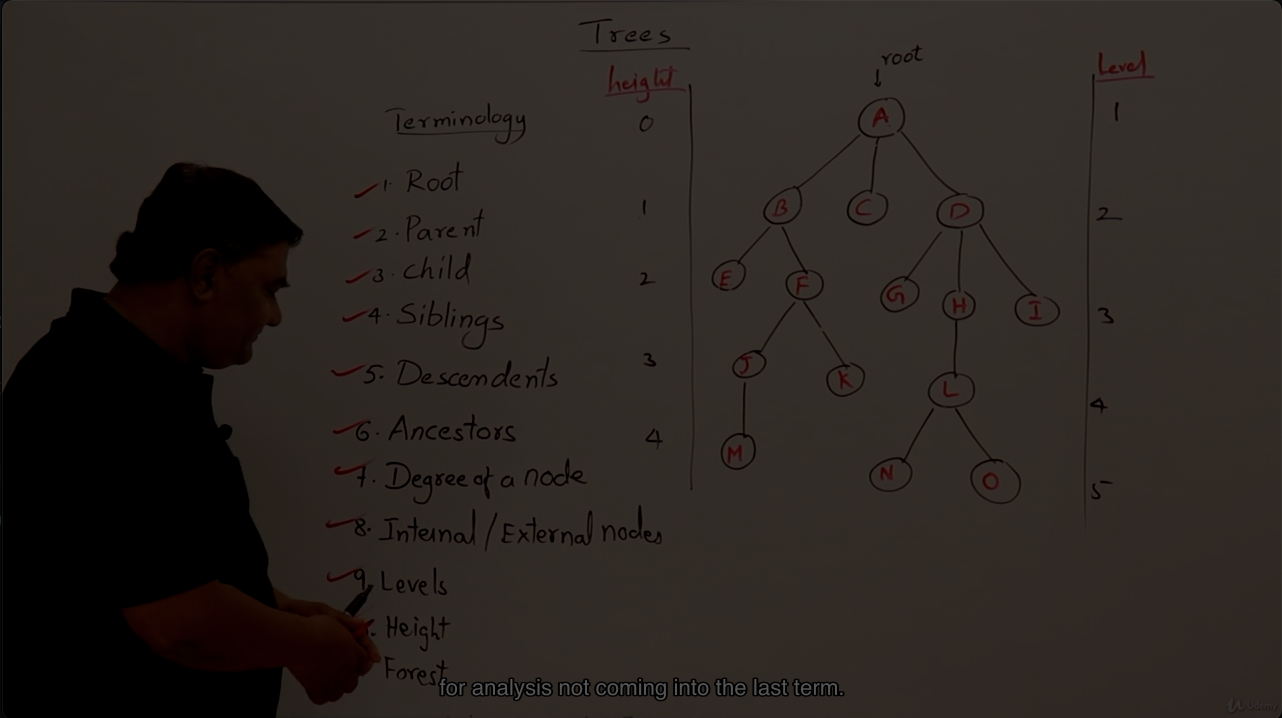 Trees
Terminology
1. Root
2. Parent
3. Child
4. Siblings
5. Descendents
6. Ancestors
7. Degree of a node
8. Internal/External nodes
9. Levels
Height
Forest
height
0
1
2
3
4
root
A
B C D
E F G H I
J K L
M N O
Level
1
2
3
4
5
for analysis not coming into the last term.
Udemy